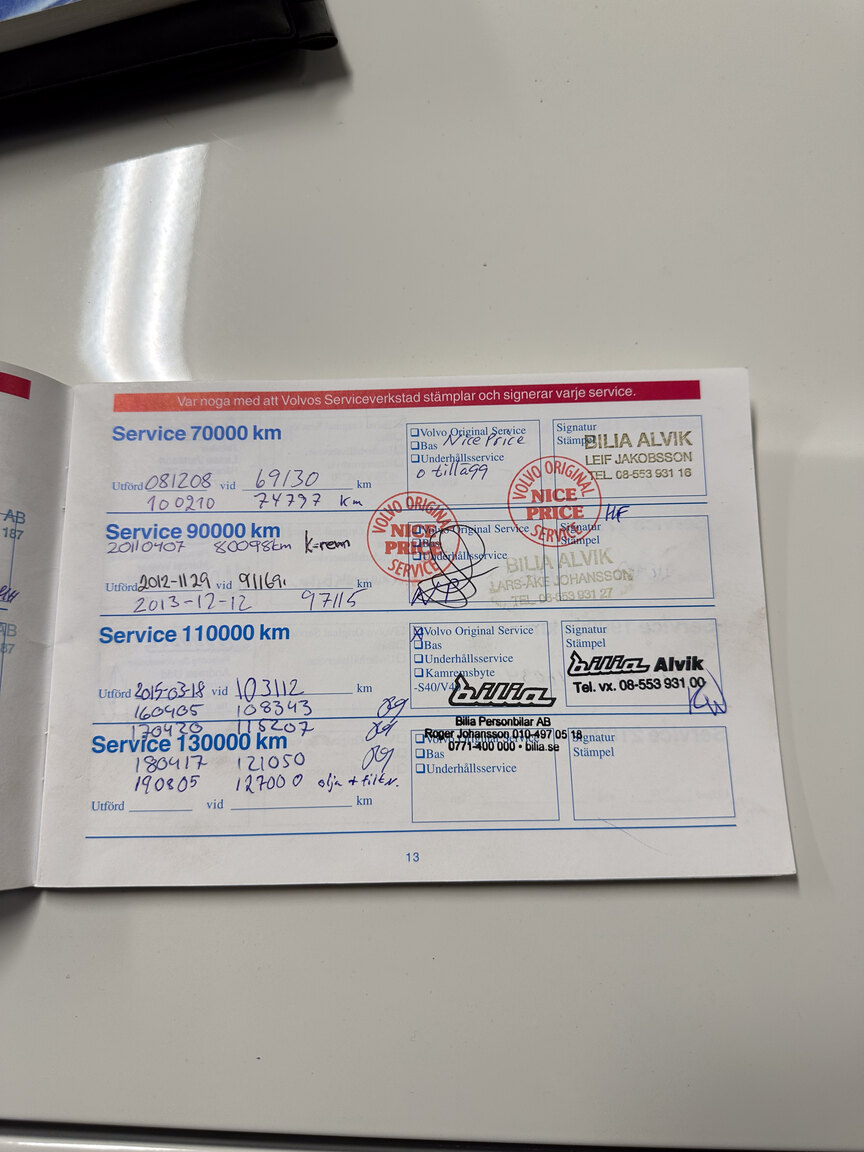 Var noga med att Volvos Serviceverkstad stämplar och signerar varje service.
Service 70000 km
Utförd 081208 vid 69130 km
100210 74797 km
Volvo Original Service
Nice Price
Bas
Underhållsservice
o tillägg
Signatur
Stämpel
BILIA ALVIK
LEIF JAKOBSSON
TEL. 08-553 931 16
VOLVO ORIGINAL
NICE
PRICE
SERVICE
HF
Service 90000 km
20110407 80098km K-rem
Utförd 2012-11-29 vid 91169 km
2013-12-12 97115
VOLVO ORIGINAL
NICE
PRICE
SERVICE
Original Service
Bas
Underhållsservice
Signatur
Stämpel
BILIA ALVIK
LARS-ÅKE JOHANSSON
TEL. 08-553 931 27
Service 110000 km
Utförd 2015-03-18 vid 103112 km
160405 108343
170420 115207
Volvo Original Service
Bas
Underhållsservice
Kamremsbyte
-S40/V4
bilia
Bilia Personbilar AB
Roger Johansson 010-497 05 18
0771-400 000 • bilia.se
Signatur
Stämpel
bilia Alvik
Tel. vx. 08-553 931 00
Service 130000 km
180417 121050
190805 127000 olja + filter.
Utförd vid km
Volvo Original Service
Bas
Underhållsservice
Signatur
Stämpel
13
AB
187